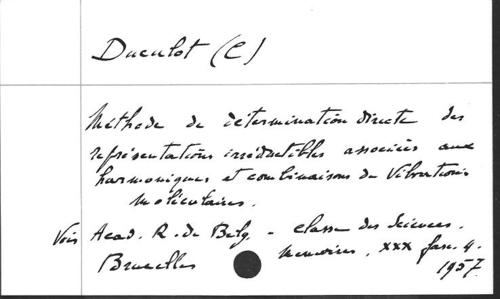 Duculot (C)
Méthode de détermination directe des
représentations irréductibles associées aux
harmoniques et combinaisons de Vibrations
moléculaires.
Voir Acad. R. de Belg. - Classe des Sciences.
Mémoires, XXX fasc. 4.
Bruxelles
1957.